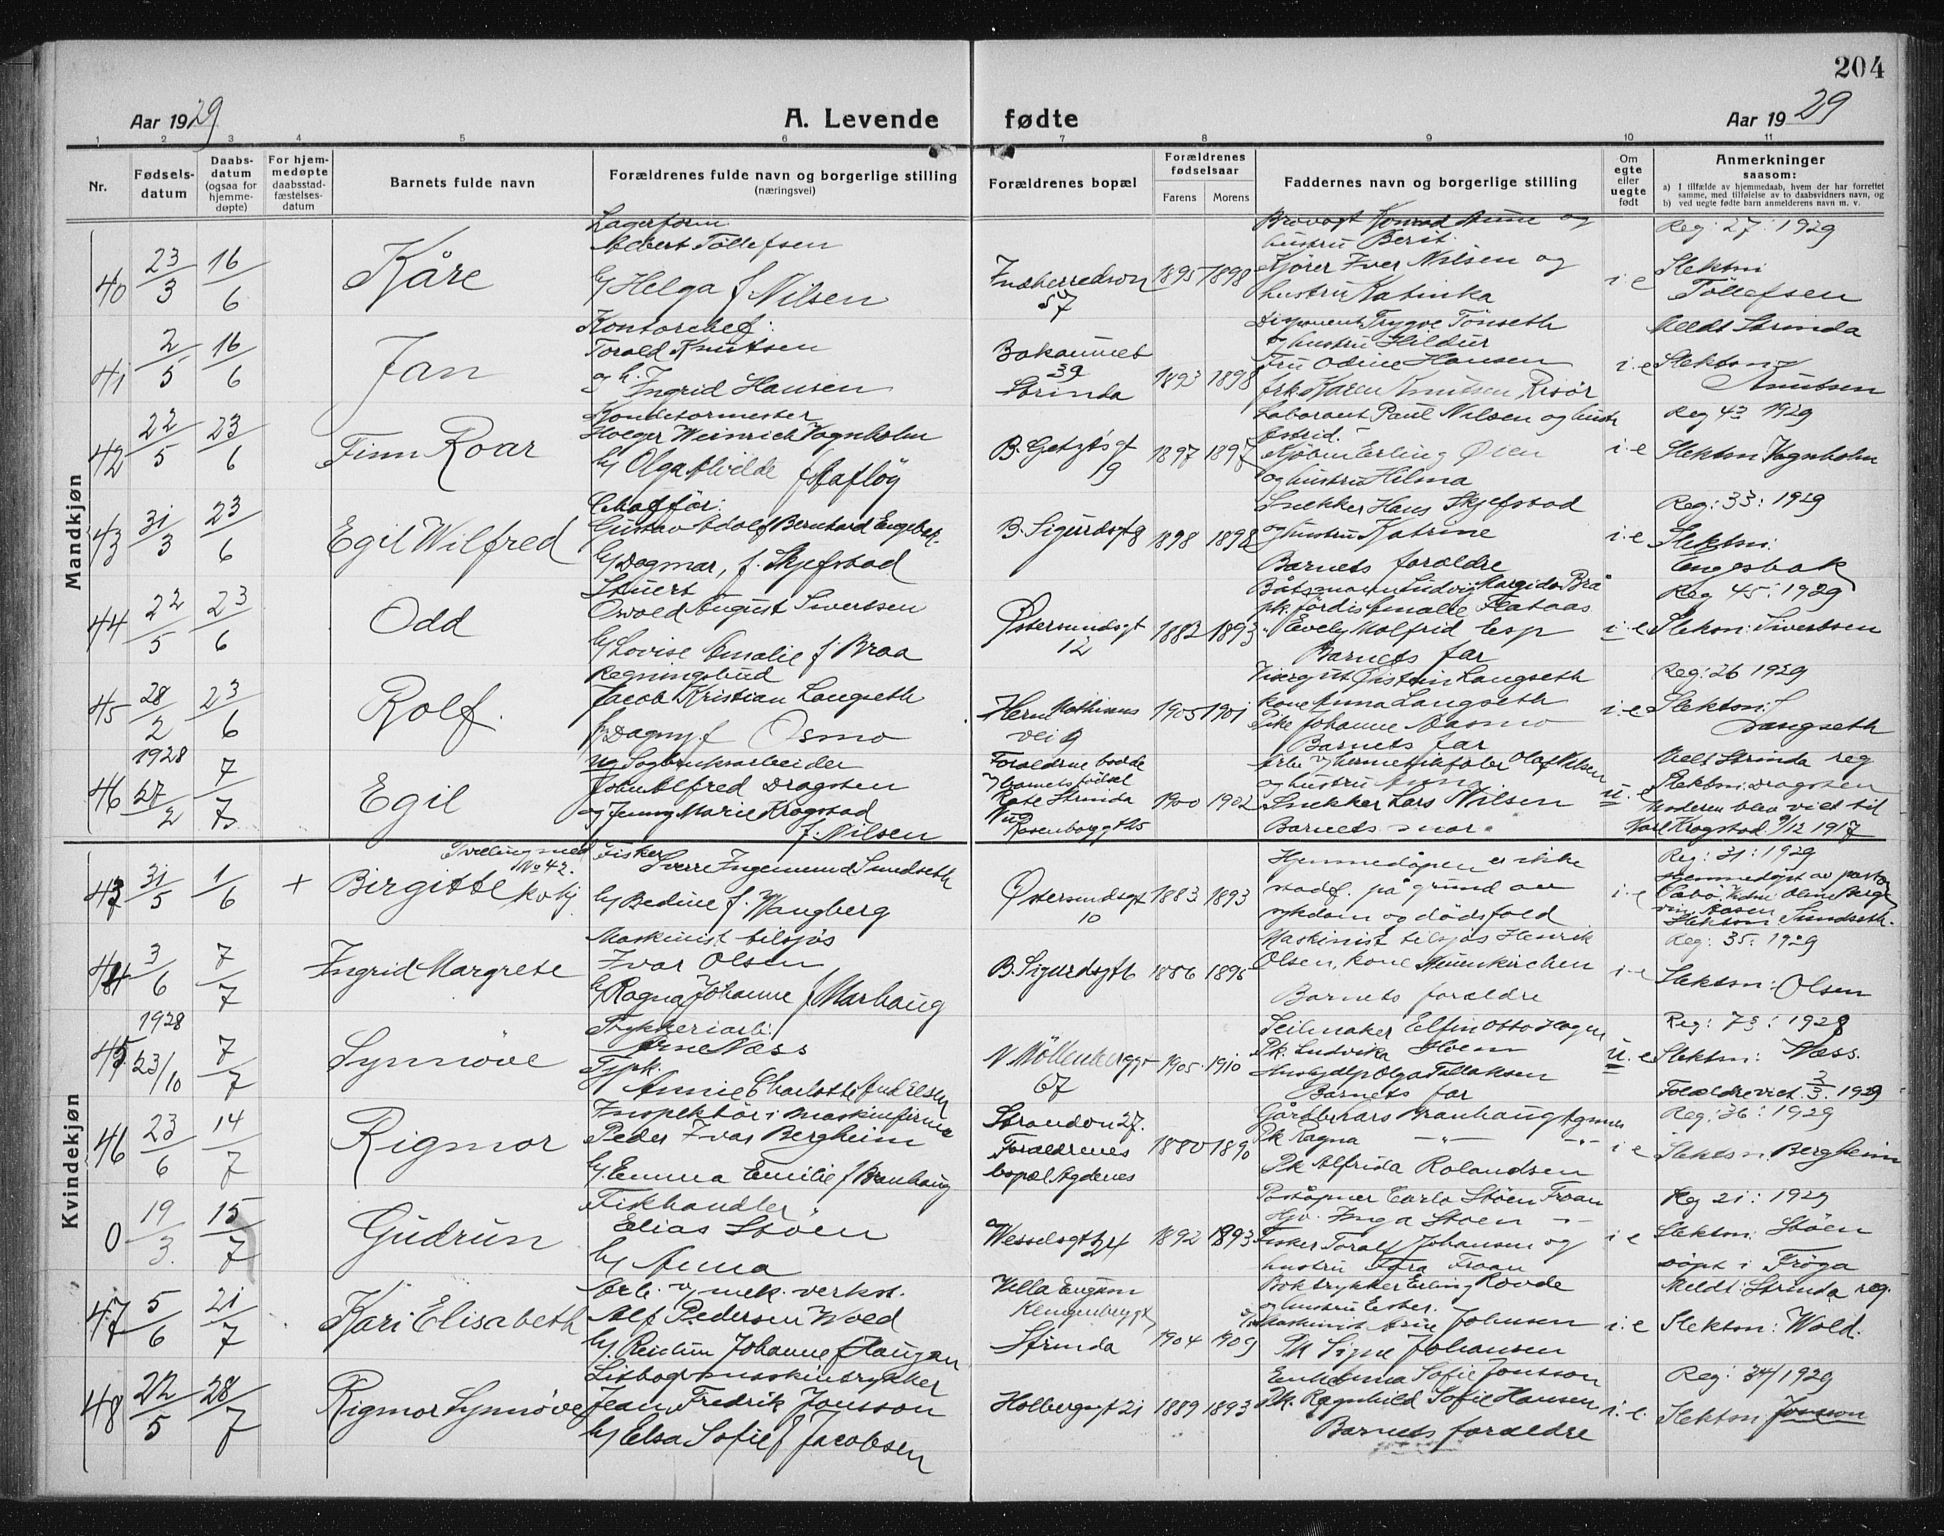 204
Aar 1929
A. Levende
fødte
Aar 1929
1 2 3 4 5 6 7 8 9 10 11
Nr.
Fødsels-
datum
Daabs-
datum
(ogsaa for
hjemme-
døpte)
For hjem-
medøpte
daabsstad-
fæstelses-
datum
Barnets fulde navn
Forældrenes fulde navn og borgerlige stilling
(næringsvei)
Forældrenes bopæl
Forældrenes
fødselsaar
Farens Morens
Faddernes navn og borgerlige stilling
Om
egte
eller
uegte
født
Anmerkninger
saasom:
a) I tilfælde av hjemmedaab, hvem der har forrettet
samme, med tilføielse av to daabsvidners navn, og
b) ved uegte fødte barn anmelderens navn m. v.
Mandkjøn
40 23/3 16/6 Kåre
Lagerform
Albert Tollefsen
Helga f. Nilsen
57
1895 1898
hustru Berit.
Kjører Iver Nilsen og
hustru Katinka
i e
Reg: 27: 1929
Slektsn
Tollefsen
41 2/5 16/6 Jan
Kontorchef:
Torald Knutsen
og h. Ingrid Hansen
Bakaunet
39
Strinda
1893 1898
Disponent Trygve Tönseth
og hustru Hildur
Fru Odine Hansen
frk. Karen Knutsen, Risör
i. e
Meldt Strinda
Slektsn:
Knutsen
42 22/5 23/6 Finn Roar
Konditormester
Holger Weinrich Vognholm
Olga Alvilde f. Stafløy
B. Getzgt
19
1897 1897
Laborant Paul Nilsen og hustr
Astrid.
Erling Øien
og hustru Hilma
i. e
Reg 43 1929
Slektsn Vognholm
43 31/3 23/6 Egil Wilfred
Chafför:
Gustav Adolf Bernhard Engesbak
Dagmar, f. Skjefstad
B. Sigurdsgt 8
1898 1898
Snekker Hans Skjefstad
og hustru Katrine
Barnets foraldre
i. e
Reg: 33: 1929
Slektsn:
Engesbak
44 22/5 23/6 Odd
Stuert
Osvald August Sivertsen
Lovise Amalie f. Braa
Østersundsgt
12
1882 1893
pk. Jordis Amalie Flataas
Evely Molfrid Esp
Barnets far
i. e
Reg 45: 1929
Slektsn: Sivertsen
45 28/2 23/6 Rolf.
Regningsbud
Jacob Kristian Langseth
Dagny f. Osmo
Herm Mathisens
vei 9
1905 1901
Visergut Øistein Langseth
kone Anna Langseth
Pik Johanne Aasmo
Barnets far
i. e
Reg: 26 1929
Slektsn:
Langseth
46 1928 27/2 7/7 Egil
ug Sagbruksarbeider
John Alfred Dragsten
og Jenny Marie Krogstad
f. Nilsen
Foraldrene bodde
v/ barnets födsel
Strinda
Rosenborggt 25
1900 1902
og hustru Anna
Snekker Lars Nilsen
Barnets mor.
u. e
Meldt Strinda reg
Slektsn: Dragsten
Moderen blev viet til
Karl Krogstad 9/12 1917
Kvindekjøn
43 31/5 1/6 + Birgitte
Tvilling med
No 42.
Fisker
Sverre Ingemund Sundseth
Bedine f. Wangberg
Østersundsgt
10
1883 1893
Hjemmedåpen er ikke
stadf. på grund av
sykdom og dödsfald
i e
Reg: 31: 1929
Hjemmedöpt av pastor
Aasen
Slektsn Sundseth.
44 3/6 7/7 Ingrid Margrete
Maskinist tilsjøs
Ivar Olsen
Ragna Johanne f. Marhaug
B. Sigurdsgt 6
1886 1896
Maskinist tilsjøs Henrik
Olsen, kone Neuenkirchen
Barnets foraldre
i e
Reg: 35. 1929
Slektsn: Olsen
45 1928 23/10 7/7 Synnöve
Trykkeriarb:
Arne Næss
Tjpk.
Annie Charlotte Andersen
N Möllenberggt
67
1905 1910
Seilmaker Elfin Otto Hagen
Pk. Ludvika Hoem
Barnets far
u. e
Reg: 73: 1928
Slektsn: Næss.
Foraldre viet 2/3. 1929
46 23/6 14/7 Rigmor
Inspektör i maskinfirma
Peder Ivar Bergheim
Emma Emilie f. Branhaug
Stranden 27.
Foraldrenes
bopæl Agdenes
1880 1890
Gårdbr Lars Branhaug Agdenes
Pk Ragna
Pk Alfrida Rolandsen
i e
Reg: 36: 1929
Slektsn Bergheim
0 19/3. 15/7 Gudrun
Fiskhandler
Elias Stöen
Anna
Wesselsgt 24
1892 1893
Poståpner Carlo Stöen Froan
Inga Stoen
Fisker Toralf Johansen og
hustru Tora Froan
i e
Reg 21: 1929
Slektsn: Stöen
döpt i Fröya
47 5/6 21/7 Kari Elisabeth
Arb. v/ mek. verkst.
Alf Pedersen Wold
Johanne f. Haugan
Villa
Strinda
1904 1909
Boktrykker Erling Rovde
og hustru Ester.
Maskinist Arne Johnsen
Pk Signe Johansen
i. e
Meldt: Strinda reg.
Slektsn: Wold.
48 22/5 28/7 Rigmor Synnöve
Jean Fredrik Jonsson
Elsa Sofie f. Jacobsen
Holbergsgt 21
1889 1893
Sofie Jonsson
Pk. Ragnhild Sofie Hansen
Barnets foraldre
i. e.
Reg: 34/1929
Slektsn Jonsson